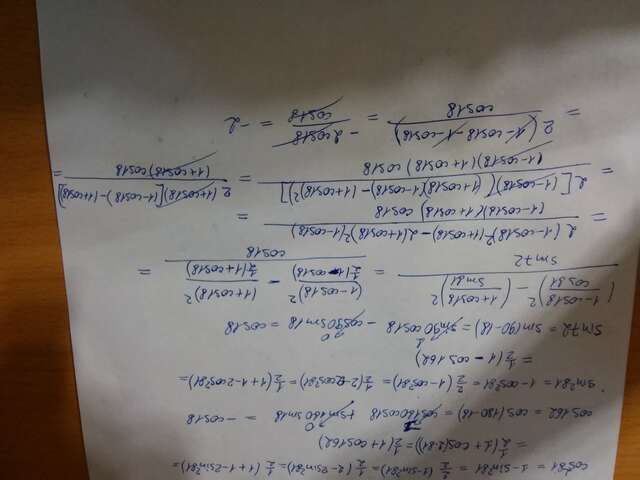 cos²81 = 1 - sin²81 = 2/2 (1 - sin²81) = 1/2 (2 - 2sin²81) = 1/2 (1 + 1 - 2sin²81) =
= 1/2 (1 + cos(2·81)) = 1/2 (1 + cos162)
cos162 = cos(180-18) = cos180 cos18 + sin180 sin18 = - cos18
sin²81 = 1 - cos²81 = 2/2 (1 - cos²81) = 1/2 (2 - 2cos²81) = 1/2 (1 + 1 - 2cos²81) =
= 1/2 (1 - cos162)
sin72 = sin(90-18) = sin90 cos18 - cos90 sin18 = cos18
((1 - cos18)/cos81)² - ((1 + cos18)/sin81)² / sin72 = (1 - cos18)²/(1/2(1 - cos18)) - (1 + cos18)²/(1/2(1 + cos18)) / cos18 =
= / (1 - cos18)(1 + cos18) cos18 =
= 2[(1 - cos18)²(1 + cos18) - (1 - cos18)(1 + cos18)²] / (1 - cos18)(1 + cos18) cos18 = 2(1 + cos18)[(1 - cos18) - (1 + cos18)] / (1 + cos18) cos18 =
= 2(1 - cos18 - 1 - cos18) / cos18 = - 2cos18 / cos18 = - 2